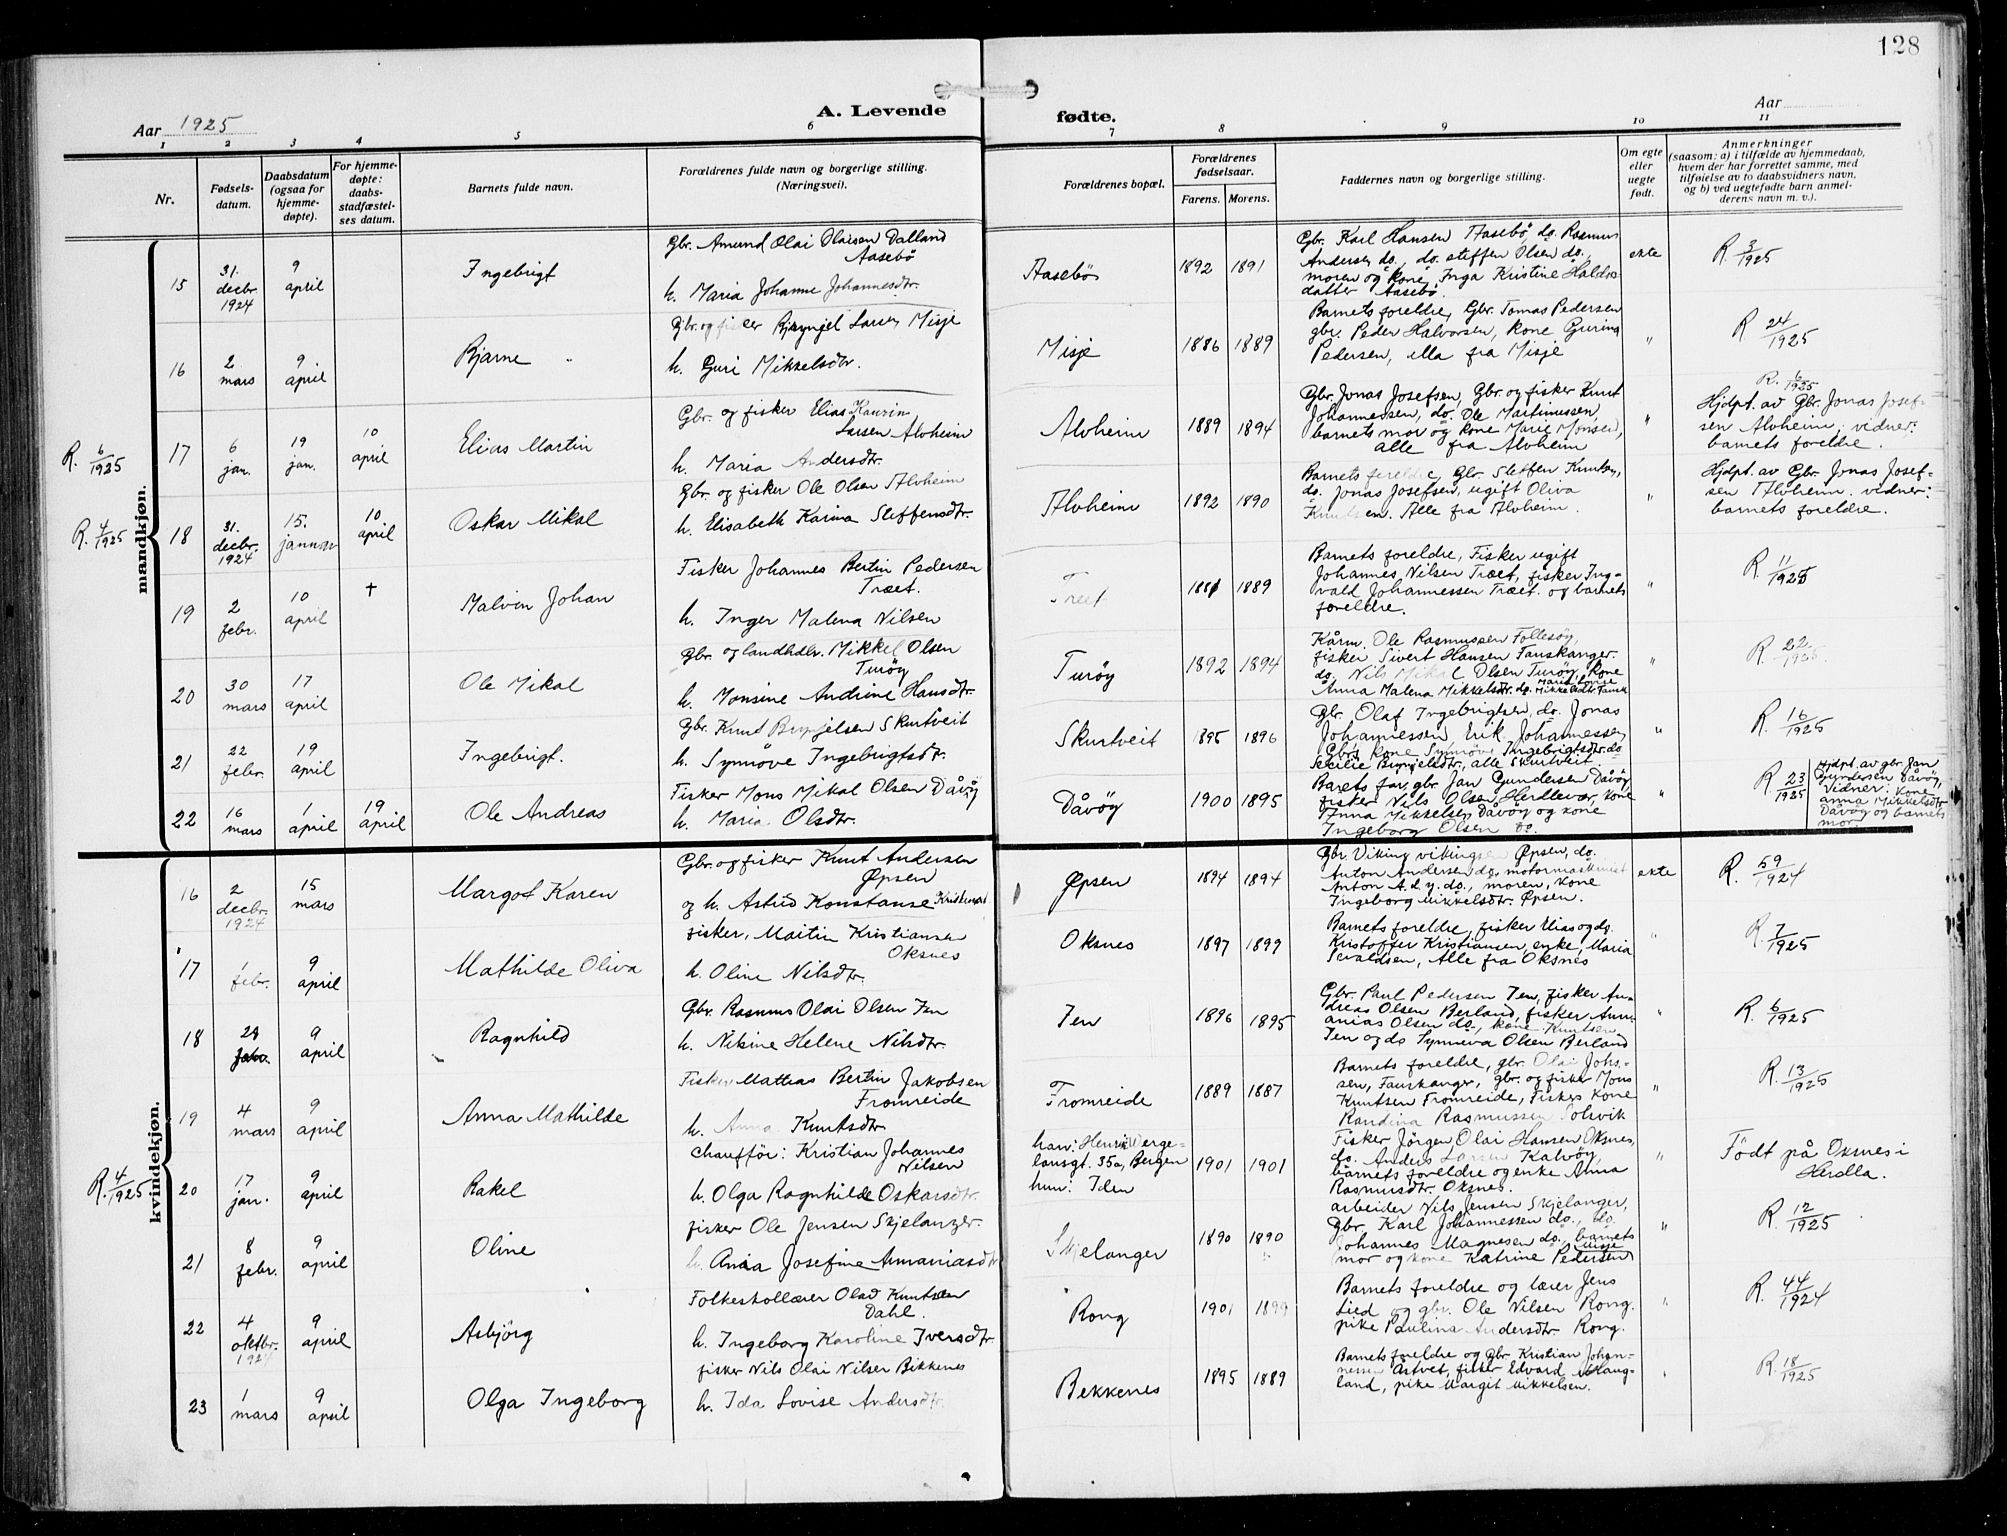 128
Aar 1925
A. Levende
fødte.
Aar
1 2 3 4 5 6 7 8 9 10 11
Nr.
Fødsels-
datum.
Daabsdatum
(ogsaa for
hjemme-
døpte).
For hjemme-
døpte:
daabs-
stadfæstel-
ses datum.
Barnets fulde navn.
Forældrenes fulde navn og borgerlige stilling.
(Næringsvei).
Forældrenes bopæl.
Forældrenes
fødselsaar.
Farens. Morens.
Faddernes navn og borgerlige stilling.
Om egte
eller
uegte
født.
Anmerkninger
(saasom: a) i tilfælde av hjemmedaab,
hvem der har forrettet samme, med
tilføielse av to daabsvidners navn,
og b) ved uegtefødte barn anmel-
derens navn m. v.).
mandkjøn.
15
31.
decbr.
1924
9
april
Ingebrigt
Gbr. Amund Olai Olaisen Dalland
Aasebö
h. Maria Johanne Johannesdtr.
Aasebö
1892 1891
Gbr. Karl Hansen Aasebö do. Rasmus
Andersen do., do. Steffen Olsen do.,
moren og kone Inga Kristine Haldo
datter Aasebö.
ekte
R. 3/1925
16
2
mars
9
april
Bjarne
Gbr. og fisker Brynjel Larsen Misje
h. Guri Mikkelsdtr.
Misje
1886 1889
Barnets foreldre, Gbr. Tomas Pedersen
gbr. Peder Halvorsen, kone Gurina
Pedersen, alla fra Misje
"
R 24/1925
R. 6/1925
17
6
jan.
19
jan.
10
april
Elias Martin
Gbr. og fisker Elias Kaurin
Larsen Alvheim
h. Maria Andersdtr.
Alvheim
1889 1894
Gbr. Jonas Josefsen, Gbr. og fisker Knut
Johannessen, do. Ole Martinussen,
barnets mor og kone Marie Monsen,
alle fra Alvheim
"
R. 6/1925
Hjdpt. av Gbr. Jonas Josef-
sen Alvheim, vidner:
barnets forelre.
R. 4/1925
18
31.
decbr.
1924
15.
januar
10
april
Oskar Mikal
Gbr. og fisker Ole Olsen Alvheim
h. Elisabeth Karina Steffensdtr.
Alvheim
1892 1890
Barnets foreldre, Gbr. Steffen Knutsen,
do. Jonas Josefsen, ugift Oliva
Knutsen. Alle fra Alvheim.
"
Hjdpt. av Gbr. Jonas Josef-
sen Alvheim. vidner:
barnets foreldre.
19
2
febr.
10
april
†
Malvin Johan
Fisker Johannes Bertin Pedersen
Træet.
h. Inger Malena Nilsen
Træet
1881 1889
Barnets foreldre, Fisker ugift
Johannes Nilsen Træet, fisker Ing-
vald Johannessen Træet. og barnets
foreldre.
"
R. 11/1925
20
30
mars
17
april
Ole Mikal
Gbr. og landhdlr. Mikkel Olsen
Turöy
h. Monsine Andrine Hansdtr.
Turöy
1892 1894
Kårm. Ole Rasmussen Follesöy,
fisker Sivert Hansen Fauskanger.
do. Nils Mikal Olsen Turöy, kone
Anna Malena Mikkelsdtr. do. Marta Lovise
Mikkelsdtr. Fausk
"
R. 22/1925.
21
22
febr.
19
april
Ingebrigt.
Gbr. Knut Brynjelsen Skurtveit
h. Synnöve Ingebrigtsdtr.
Skurtveit
1895 1896
Gbr. Olaf Ingebrigtsen, do. Jonas
Johannessen, Erik Johannessen,
Gbrs kone Synnöve Ingebrigtsdtr. do
Sesilie Brynjelsdtr., alle Skurtveit.
"
R. 16/1925
22
16
mars
1
april
19
april
Ole Andreas
Fisker Mons Mikal Olsen Dåvöy
h. Maria Olsdtr.
Dåvöy
1900 1895
Barets far, gbr. Jan Gundersen Dåvöy
fisker Nils Olsen Herdlevær, kone
Anna Mikkelsen Dåvöy og kone
Ingeborg Olsen do.
"
R. 23/1925
Hjdpt. av gbr. Jan
Gundersen Dåvöy,
Vidner: kone
anna Mikkelsdtr
Dåvöy og barnets
mor.
kvindekjøn.
16
2
decbr.
1924
15
mars
Margot Karen
Gbr. og fisker Knut Andersen
Øpsen
og h. Astrid Konstanse
Øpsen
1894 1894
Gbr. Viking vikingsen Øpsen, do.
Anton Andersen do., motormaskinist
Anton A. d. y. do., moren, kone
Ingeborg Mikkelsdtr. Øpsen.
ekte
R. 59/1924
17
1
febr.
9
april
Mathilde Oliva
fisker, Martin Kristiansen
Oksnes
h. Oline Nilsdtr.
Oksnes
1897 1899
Barnets foreldre, fisker Elias og do.
Kristoffer Kristiansen, enke, Maria
Alle fra Oksnes
"
R. 7/1925
18
28
jan.
9
april
Ragnhild
Gbr. Rasmus Olai Olsen Ien
h. Nikine Helene Nilsdtr.
Ien
1896 1895
Gbr. Paul Pedersen Ien, fisker An-
dreas Olsen Berland, fisker Ann-
anias Olsen do., kone Knutsen
Ien og do Synneva Olsen Berland
"
R. 6/1925
19
4
mars
9
april
Anna Mathilde
Fisker Mattias Bertin Jakobsen
Fromreide
h. Anna Knutsdtr
Fromreide
1889 1887
Barnets foreldre, gbr. Olai Johs.-
sen, Fauskanger, gbr. og fisker Mons
Knutsen Fromreide, Fiskers kone
Randina Rasmussen Solsvik
"
R. 13/1925
R. 4/1925
20
17
jan.
9
april
Rakel
Chaufför: Kristian Johannes
Nilsen
h. Olga Ragnhilde Oskarsdtr.
han: Henrik Werge-
landsgt. 35a, Bergen
hun: Iden
1901 1901
Fisker Jörgen Olai Hansen Oksnes,
do. Anders Larsen Kalvöy,
barnets foreldre og enke Anna
Rasmusdtr. Oksnes.
"
Födt på Oksnes i
Herdla.
21
8
febr.
9
april
Oline
fisker Ole Jensen Skjelanger.
h. Anna Josefine Annaniasdtr
Skjelanger
1890 1890
arbeider Nils Jensen Skjelanger,
Gbr. Karl Johannessen do., do.
Johannes Magnesen do., barnets
mor og kone Katrine Pedersen Misje
"
R. 12/1925
22
4
oktbr.
1924
9
april
Asbjörg
Folkeskollærer Olav Knutsen
Dahl.
h. Ingeborg Karoline Iversdtr.
Rong
1901 1899
Barnets foreldre og lærer Jens
Lied og gbr. Ole Nilsen Rong.
pike Paulina Andersdtr. Rong.
"
R. 44/1924
23
1
mars
9
april
Olga Ingeborg
fisker Nils Olai Nilsen Bekkenes
h. Ida Lovise Andersdtr.
Bekkenes
1895 1889
Barnets foreldre og Gbr. Kristian Johan-
nessen Åstvet, fisker Edvard
land, pike Margit Mikkelsen.
R. 18/1925